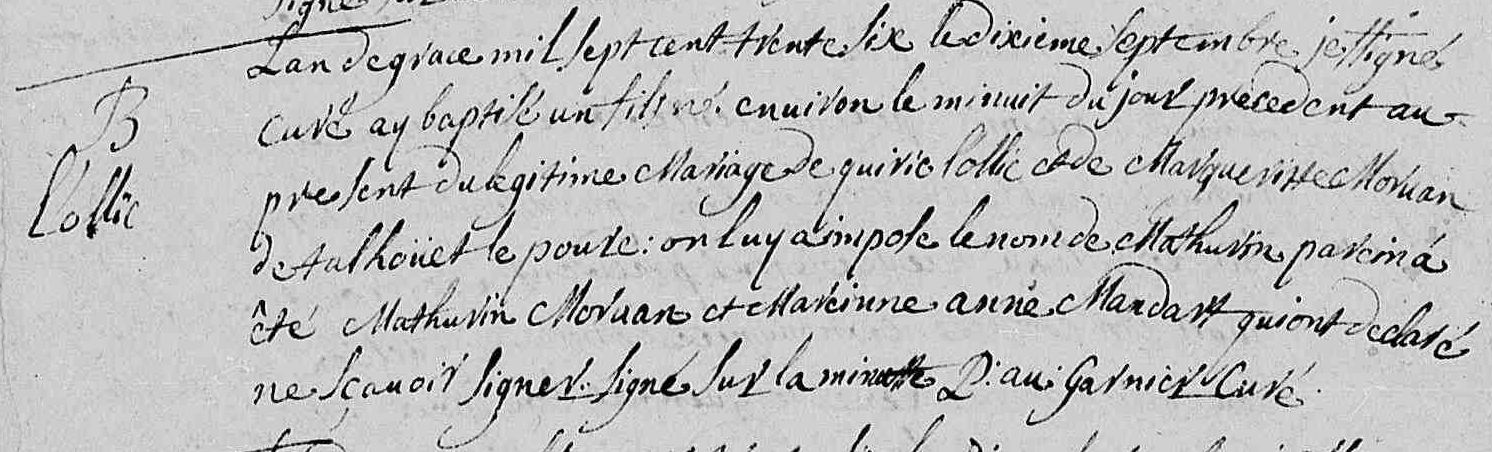 signé sur
Lan de grace mil sept cent trente six le dixieme septembre je ssigné
B
curé ay baptisé un fils né enuiron le minuit du jour precedent au
present du legitime Mariage de quiric lollic et de Margueritte Moruan
Lollic
de talhoüet le poure : on luy a imposé le nom de Mathurin parein á
êté Mathurin Moruan et Mareinne anne Mandart qui ont declaré
ne sçauoir signer signé sur la minutte P : au : Garnier Curé